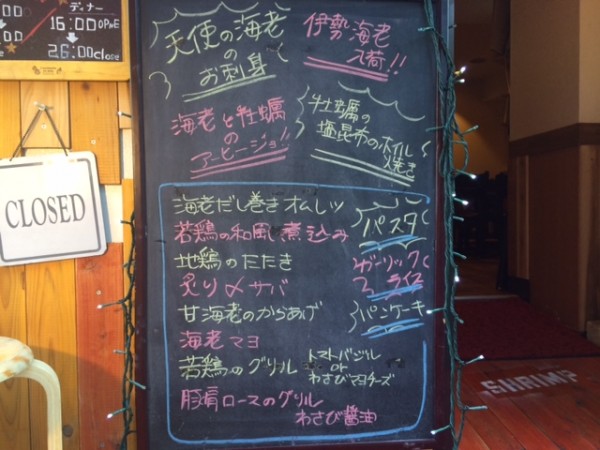 ディナー
16:00 OPeN
26:00close
天使の海老
の
お刺身
伊勢海老
入荷!!
海老と牡蠣
の
アヒージョ!
牡蠣の
塩昆布のホイル
焼き
CLOSED
海老だし巻きオムレツ
若鶏の和風煮込み
地鶏のたたき
炙り〆サバ
甘海老のからあげ
海老マヨ
若鶏のグリル トマトバジル
or
わさびマヨチーズ
豚肩ロースのグリル
わさび醤油
パスタ
ガーリック
ライス
パンケーキ
SHRIMP